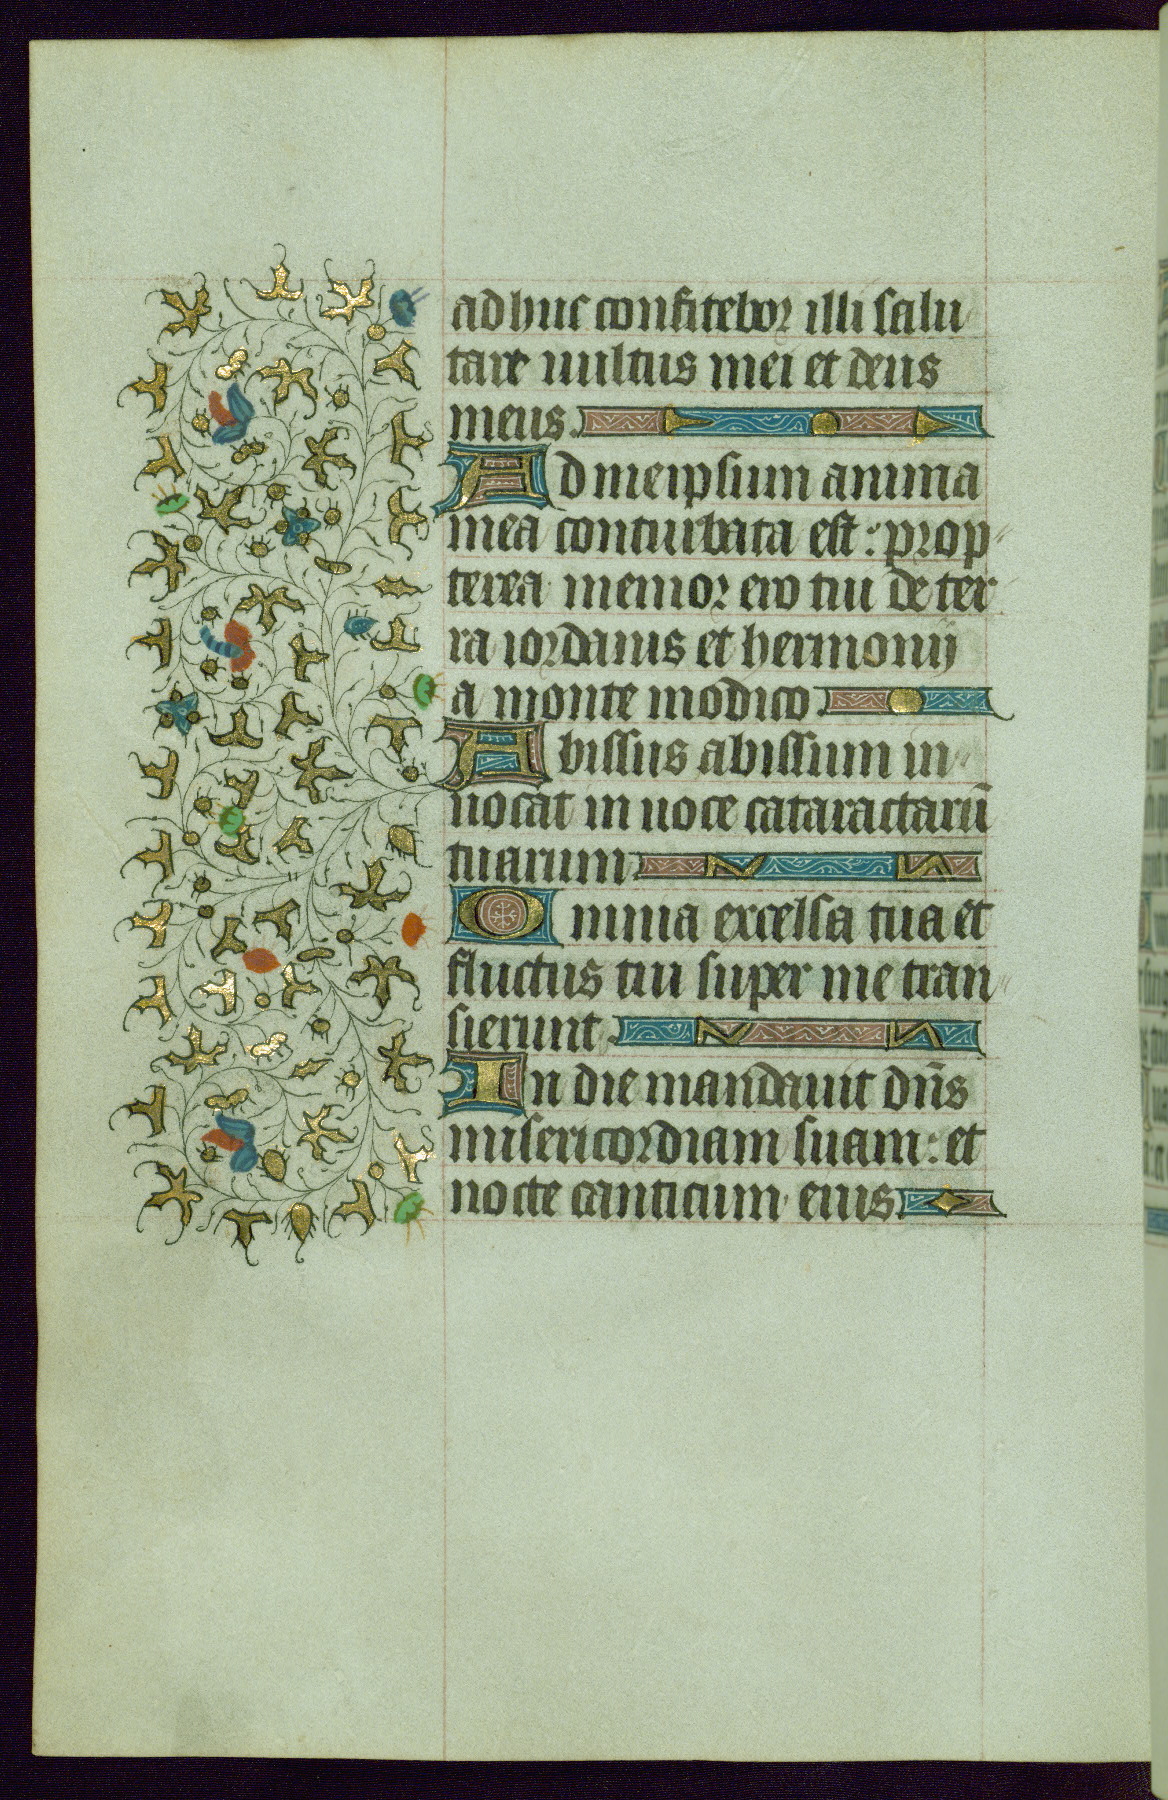 adhuc confitebor illi salu
tare uultus mei et deus
meus.
Ad meipsum anima
mea conturbata est: prop
terea memor ero tui de ter
ra iordanis et hermonij
a monte modico.
Abissus abissum in
uocat in uoce cataractarũ
tuarum
Omnia excelsa tua et
fluctus tui super me tran
sierunt.
In die mandauit dñs
misericordiam suam: et
nocte canticum eius.